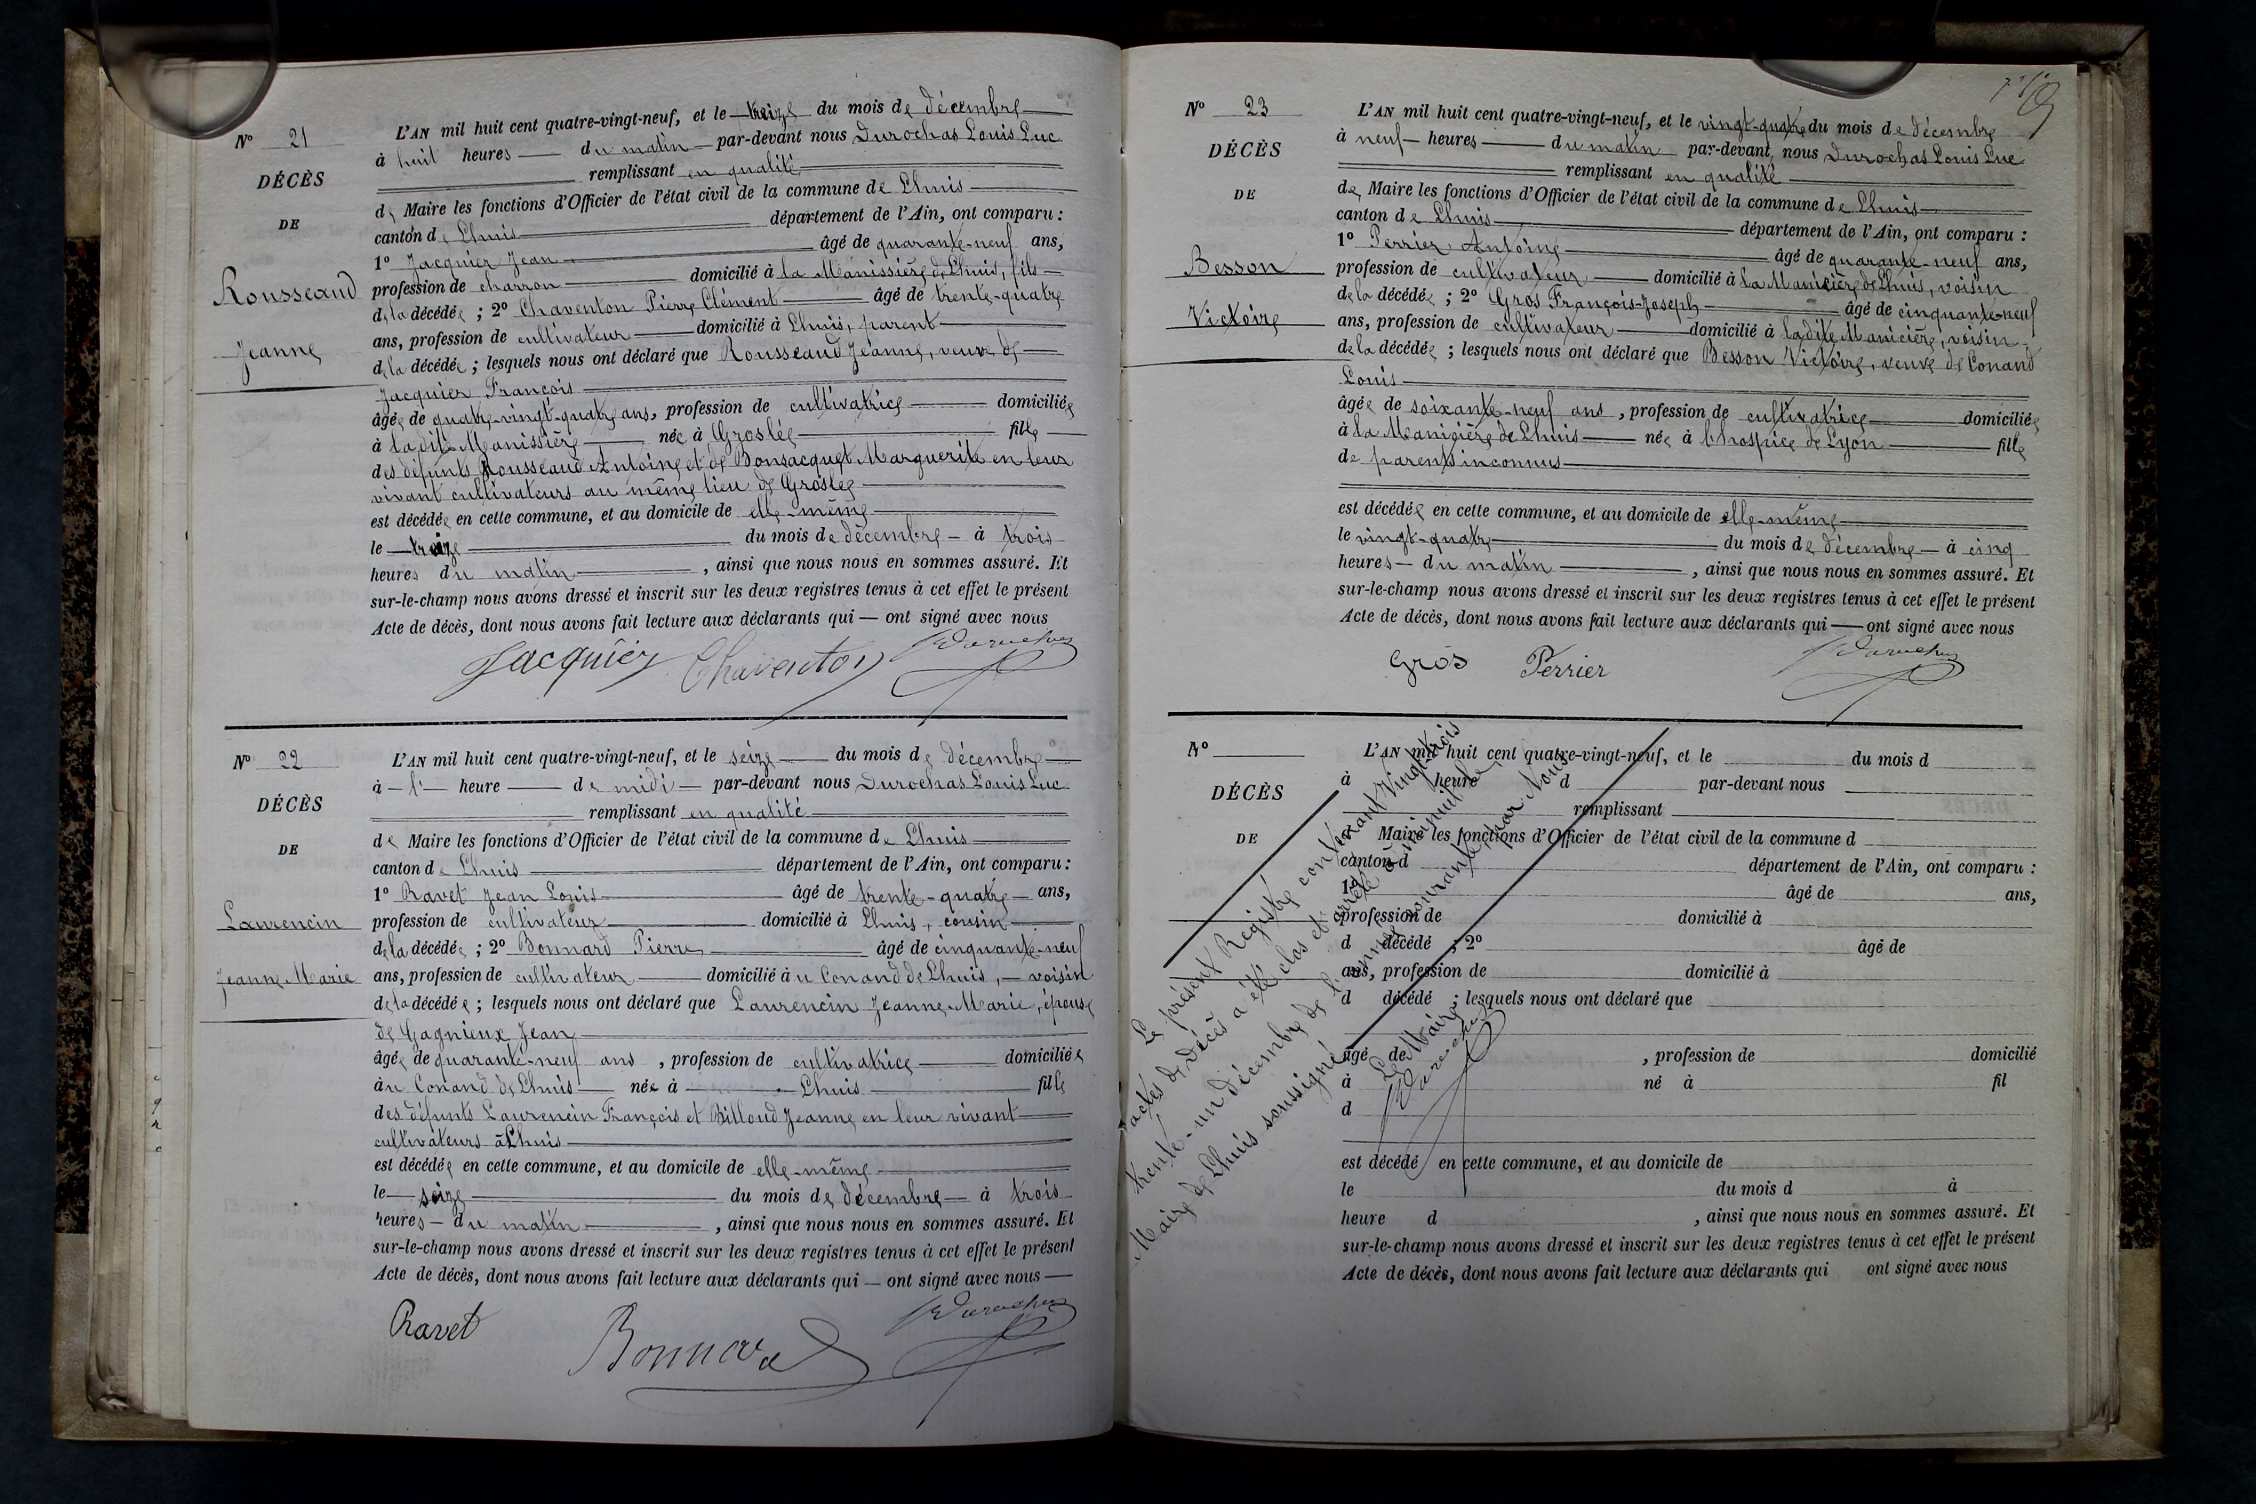 N° 21
DÉCÈS
DE
Rousseaud
Jeanne
L'AN mil huit cent quatre-vingt-neuf, et le treize du mois de décembre
à huit heures du matin par-devant nous Durochas Louis Luc
remplissant en qualité
de Maire les fonctions d'Officier de l'état civil de la commune de Lhuis
canton de Lhuis département de l'Ain, ont comparu :
1° Jacquier Jean âgé de quarante-neuf ans,
profession de charron domicilié à la Manissière de Lhuis, fils
de la décédée ; 2° Chaventon Pierre Clément âgé de trente-quatre
ans, profession de cultivateur domicilié à Lhuis, parent
de la décédée ; lesquels nous ont déclaré que Rousseaud Jeanne, veuve de
Jacquier François
âgée de quatre-vingt-quatre ans, profession de cultivatrice domiciliée
à ladite Manissière née à Groslée fille
des défunts Rousseaud Antoine et de Bonsacquet Marguerite en leur
vivant cultivateurs au même lieu de Groslée
est décédée en cette commune, et au domicile de elle-même
le treize du mois de décembre à trois
heures du matin , ainsi que nous nous en sommes assuré. Et
sur-le-champ nous avons dressé et inscrit sur les deux registres tenus à cet effet le présent
Acte de décès, dont nous avons fait lecture aux déclarants qui — ont signé avec nous
Jacquier Chaventon Durochas
N° 22
DÉCÈS
DE
Laurencin
Jeanne Marie
L'AN mil huit cent quatre-vingt-neuf, et le seize du mois de décembre
à l' heure de midi par-devant nous Durochas Louis Luc
remplissant en qualité
de Maire les fonctions d'Officier de l'état civil de la commune de Lhuis
canton de Lhuis département de l'Ain, ont comparu :
1° Ravet Jean Louis âgé de trente-quatre ans,
profession de cultivateur domicilié à Lhuis, cousin
de la décédée ; 2° Bonnard Pierre âgé de cinquante-neuf
ans, profession de cultivateur domicilié au Conand de Lhuis, voisin
de la décédée ; lesquels nous ont déclaré que Laurencin Jeanne-Marie, épouse
de Gagnieux Jean
âgée de quarante-neuf ans , profession de cultivatrice domiciliée
au Conand de Lhuis née à Lhuis fille
des défunts Laurencin François et Billoud Jeanne en leur vivant
cultivateurs à Lhuis
est décédée en cette commune, et au domicile de elle-même
le seize du mois de décembre à trois
heures du matin , ainsi que nous nous en sommes assuré. Et
sur-le-champ nous avons dressé et inscrit sur les deux registres tenus à cet effet le présent
Acte de décès, dont nous avons fait lecture aux déclarants qui — ont signé avec nous
Ravet Bonnard Durochas
N° 23
DÉCÈS
DE
Besson
Victoire
L'AN mil huit cent quatre-vingt-neuf, et le vingt-quatre du mois de décembre
à neuf heures du matin par-devant nous Durochas Louis Luc
remplissant en qualité
de Maire les fonctions d'Officier de l'état civil de la commune de Lhuis
canton de Lhuis département de l'Ain, ont comparu :
1° Perrier Antoine âgé de quarante-neuf ans,
profession de cultivateur domicilié à la Manicière de Lhuis, voisin
de la décédée ; 2° Gros François-Joseph âgé de cinquante-neuf
ans, profession de cultivateur domicilié à ladite Manicière, voisin
de la décédée ; lesquels nous ont déclaré que Besson Victoire, veuve de Conand
Louis
âgée de soixante-neuf ans , profession de cultivatrice domiciliée
à la Manicière de Lhuis née à l'hospice de Lyon fille
de parents inconnus
est décédée en cette commune, et au domicile de elle-même
le vingt-quatre du mois de décembre à cinq
heures du matin , ainsi que nous nous en sommes assuré. Et
sur-le-champ nous avons dressé et inscrit sur les deux registres tenus à cet effet le présent
Acte de décès, dont nous avons fait lecture aux déclarants qui — ont signé avec nous
Gros Perrier Durochas
N°
DÉCÈS
DE
L'AN mil huit cent quatre-vingt-neuf, et le du mois d
à heure d par-devant nous
remplissant
Maire les fonctions d'Officier de l'état civil de la commune d
canton d département de l'Ain, ont comparu :
1° âgé de ans,
profession de domicilié à
d décédé ; 2° âgé de
ans, profession de domicilié à
d décédé ; lesquels nous ont déclaré que
âgé de , profession de domicilié
à né à fil
d
est décédé en cette commune, et au domicile de
le du mois d à
heure d , ainsi que nous nous en sommes assuré. Et
sur-le-champ nous avons dressé et inscrit sur les deux registres tenus à cet effet le présent
Acte de décès, dont nous avons fait lecture aux déclarants qui ont signé avec nous
Le présent Registre contenant Vingt-trois
actes de décès a été clos et arrêté à minuit le
trente-un décembre de l'année courante, par Nous
Maire de Lhuis soussigné
Le Maire
Durochas